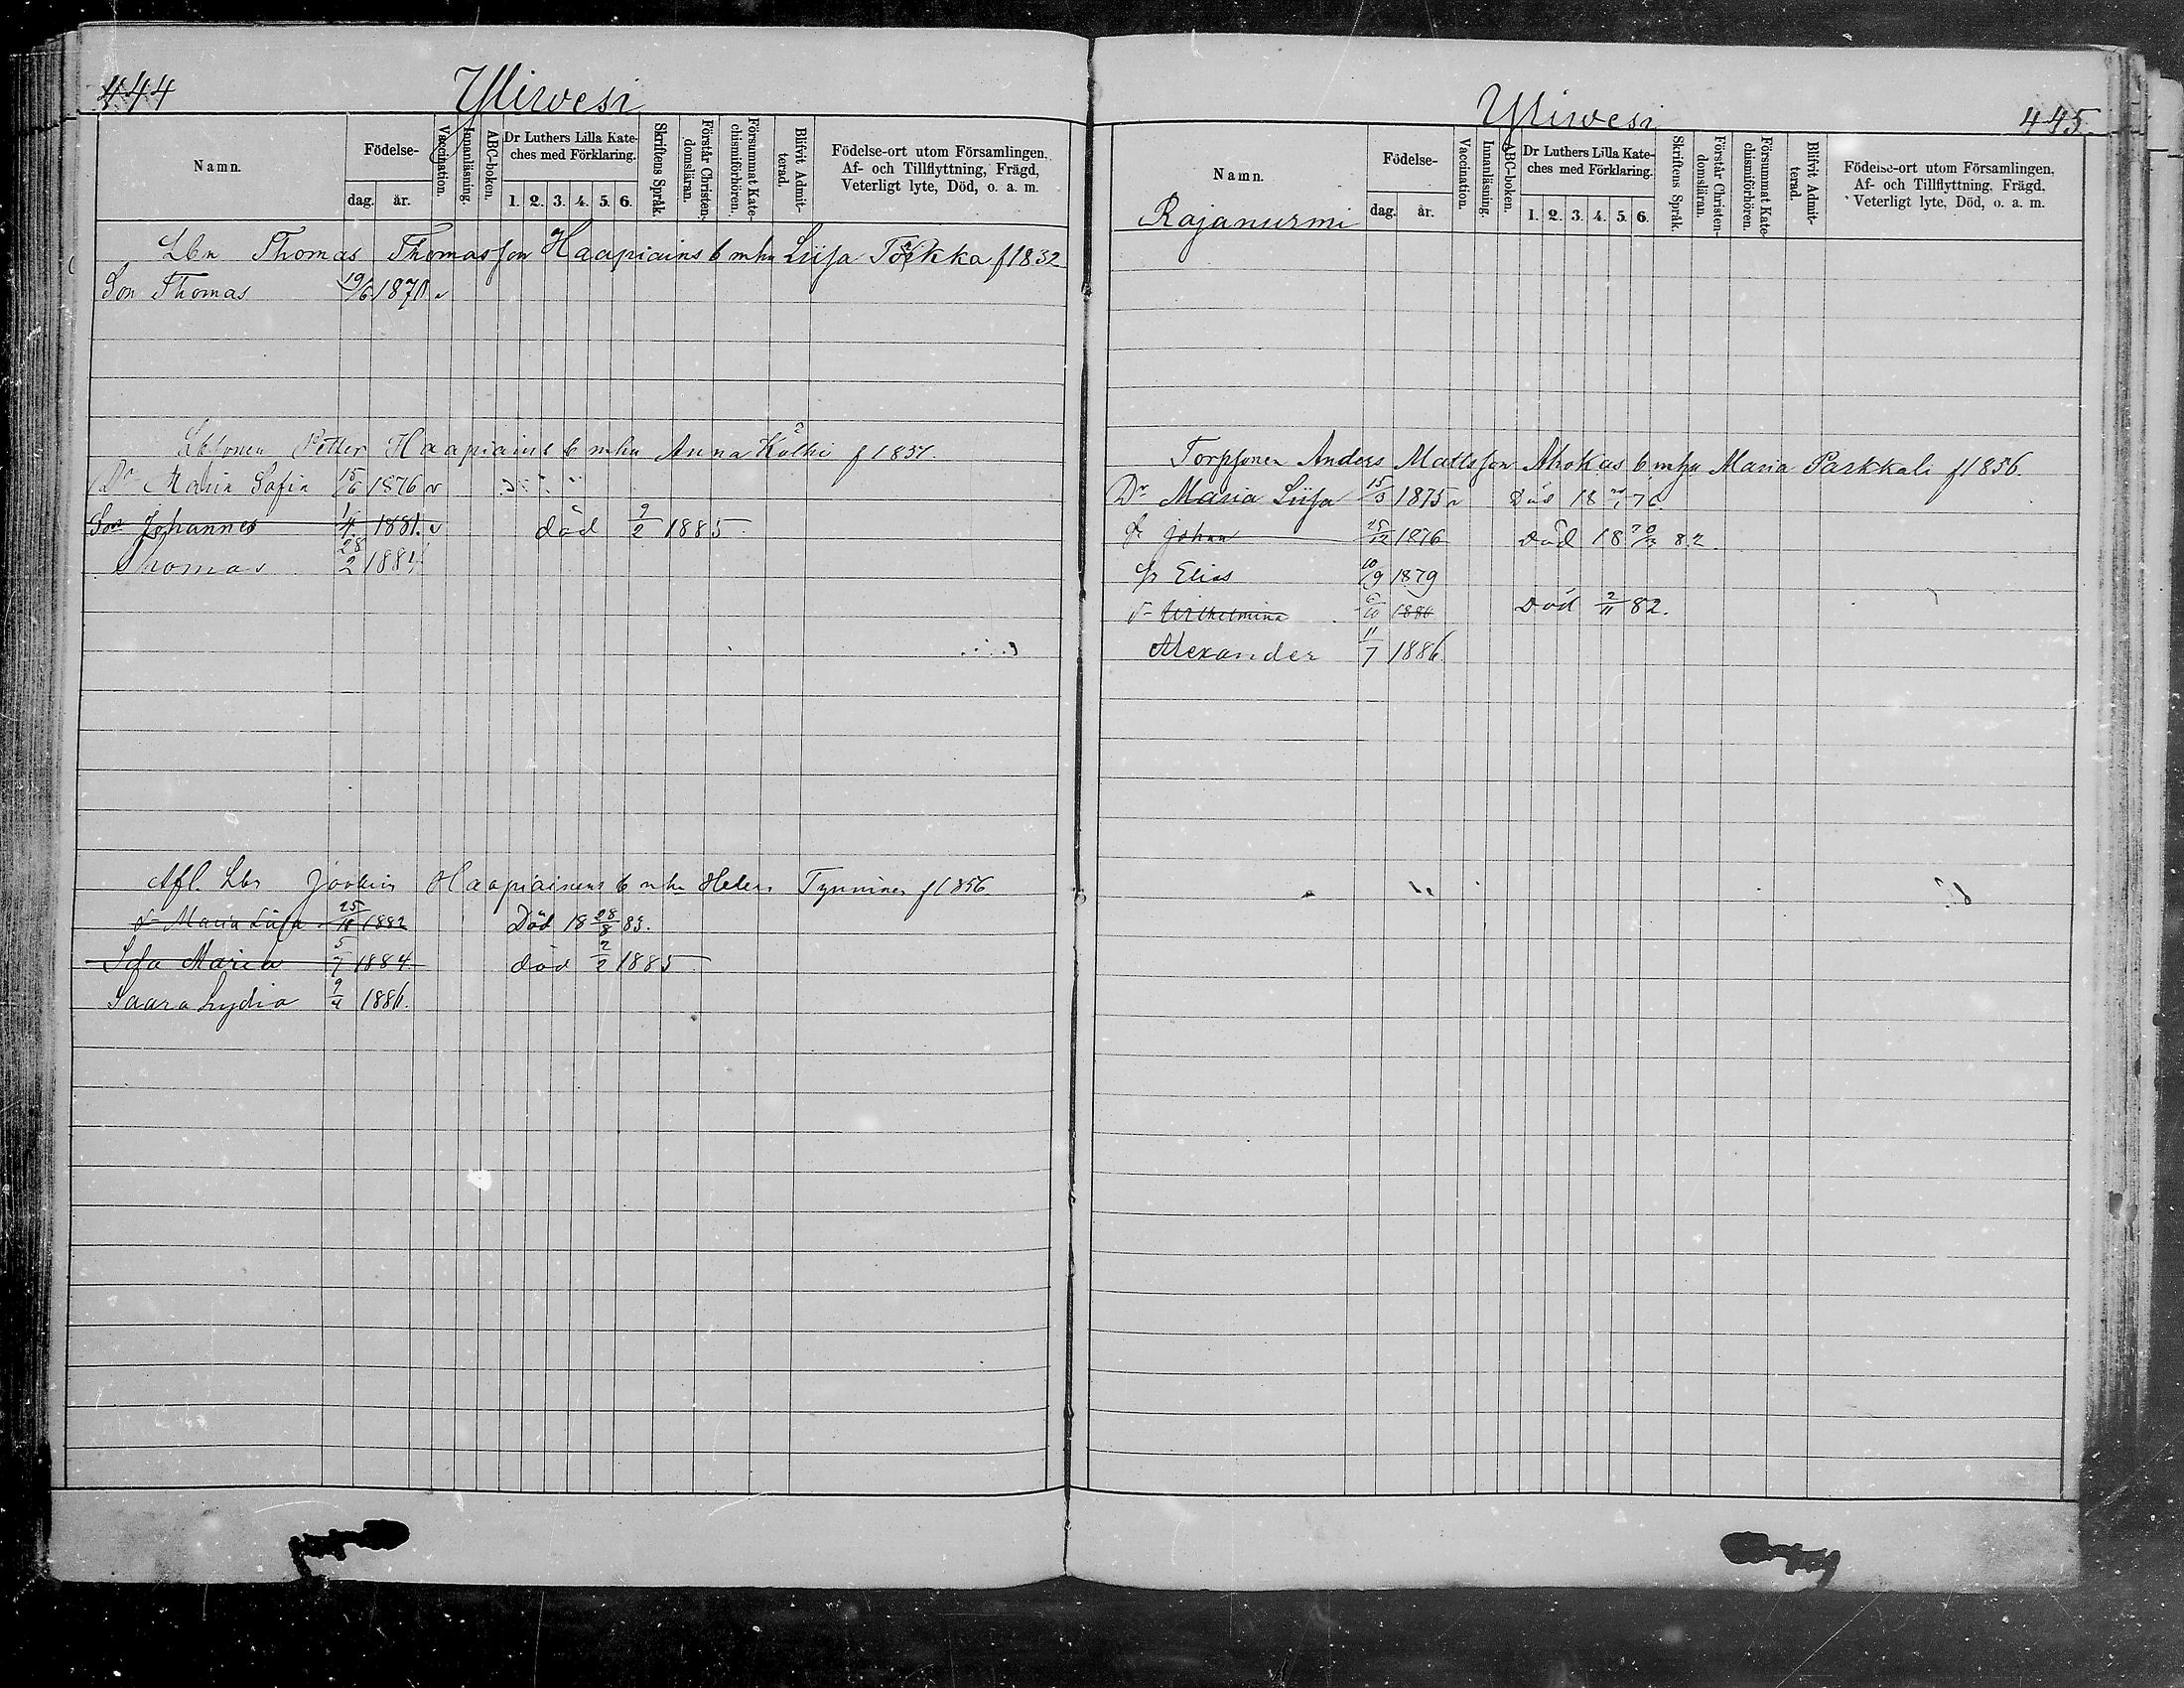 444
Yliwesi
Namn.
Födelse-
dag. år.
Vaccination.
Innanläsning.
ABC-boken.
Dr Luthers Lilla Kate-
ches med Förklaring.
1. 2. 3. 4. 5. 6.
Skriftens Språk.
Förstår Christen-
domsläran.
Försummat Kate-
chismiförhören.
Blifvit Admit-
terad.
Födelse-ort utom Församlingen,
Af- och Tillflyttning, Frägd,
Veterligt lyte, Död, o. a. m.
Lbn Thomas Thomasson Haapiains b mhu Liisa f 1832
Son Thomas 19/6 1870 v
Petter Haapiains b mhu Anna Kölhi f 1851
Dr Maria Sofia 15/6 1876 v
Son Johannes 1/4 1881. v död 9/2 1885
Thomas 28/2 1884
Afl. Lbs Haapiainens b mhu Helen Tynninen f 1856
dr Maria Liisa 25/11 1882 Död 18 28/8 83.
Ida Maria 5/7 1884. död 2/2 1885
Saara Lydia 9/4 1886.
Yliwesi
445.
Namn.
Rajanurmi
Födelse-
dag. år.
Vaccination.
Innanläsning.
ABC-boken.
Dr Luthers Lilla Kate-
ches med Förklaring.
1. 2. 3. 4. 5. 6.
Skriftens Språk.
Förstår Christen-
domsläran.
Försummat Kate-
chismiförhören.
Blifvit Admit-
terad.
Födelse-ort utom Församlingen,
Af- och Tillflyttning, Frägd,
Veterligt lyte, Död, o. a. m.
Torpsonen Anders Mattsson Ahokas b mhu Maria Parkkali f 1856.
Dr Maria Liisa 15/3 1875 v Död 18 76.
Johan 25/12 1876 Död 18 20/3 82.
Elias 10/9 1879
dr Wilhelmina 6/10 1880 Död 2/11 82.
Alexander 11/7 1886